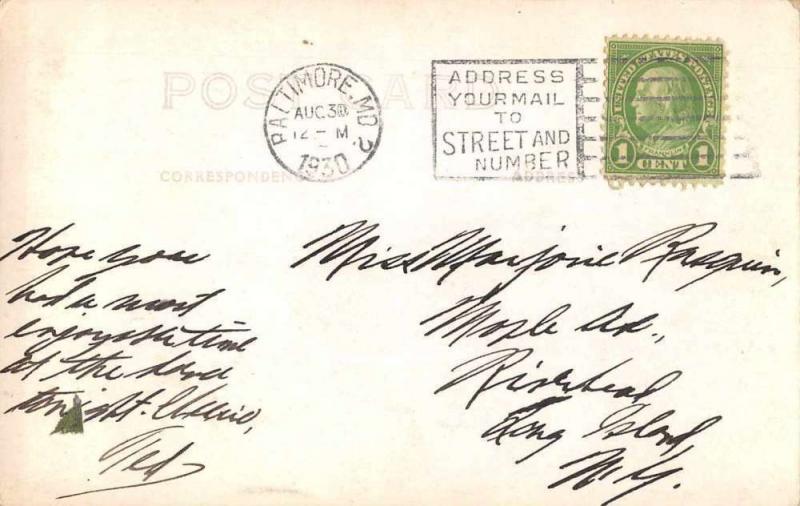 POST CARD
BALTIMORE, MD. 2
AUG 30
12 — M
1930
ADDRESS
YOUR MAIL
TO
STREET AND
NUMBER
UNITED STATES POSTAGE
FRANKLIN
1 CENT 1
CORRESPONDENCE
ADDRESS
Hope you
had a most
enjoyable time
at the dance
tonight.
Ted
Miss Marjorie Raequin,
Maple Av.,
Riverhead
Long Island,
N.Y.